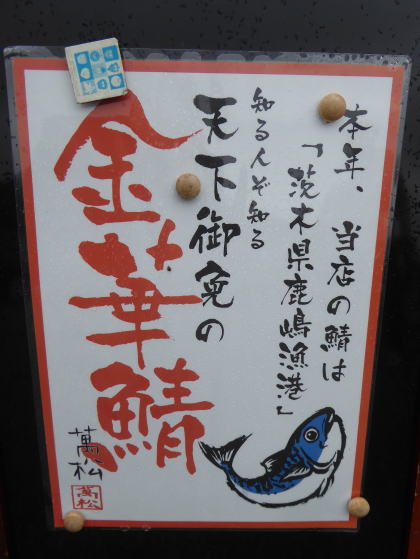 本年、当店の鯖は
「茨木県鹿嶋漁港」
知る人ぞ知る
天下御免の
金華鯖
萬松
萬松